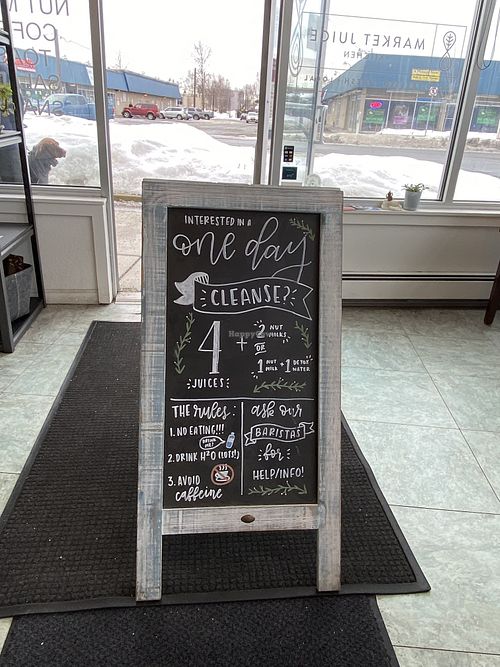 NUT M
CO
TOA
MARKET JUICE
KITCHEN
INTERESTED IN A
one day
CLEANSE?
4 JUICES
+ 2 NUT MILKS
OR
1 NUT MILK + 1 DETOX WATER
THE RULES:
1. NO EATING!!!
DRINK ME!
2. DRINK H2O (LOTS!)
3. AVOID
caffeine
ask our
BARISTAS
for
HELP/INFO!
HappyCow